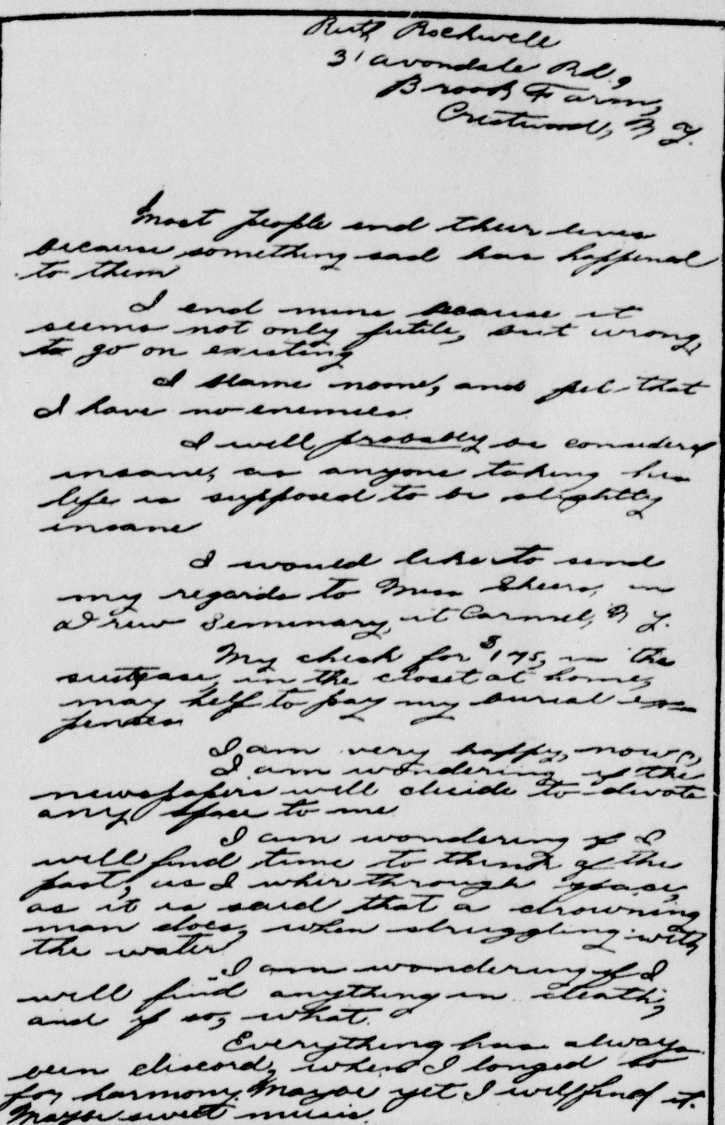 Ruth Rockwell
31 Avondale Rd,
Brook Farm,
Crestwood, N Y.
Most people end their lives
because something sad has happened
to them
I end mine because it
seems not only futile, but wrong,
to go on existing
I blame noone, and feel that
I have no enemies.
I will probably be considered
insane, as anyone taking his
life is supposed to be slightly
insane
I would like to send
my regards to Miss in
Drew Seminary, at Carmel, N Y.
My check for $175, in the
suitcase, in the closet at home,
may help to pay my burial ex-
penses
I am very happy, now,
I am wondering if the
newspapers will decide to devote
any space to me
I am wondering if I
will find time to think of the
past, as I whir through space,
as it is said that a drowning
man does, when struggling with
the water
I am wondering if I
will find anything in death,
and if so, what.
Everything has always
been discord, when I longed so
for harmony. Maybe yet I will find it.
Maybe sweet music.